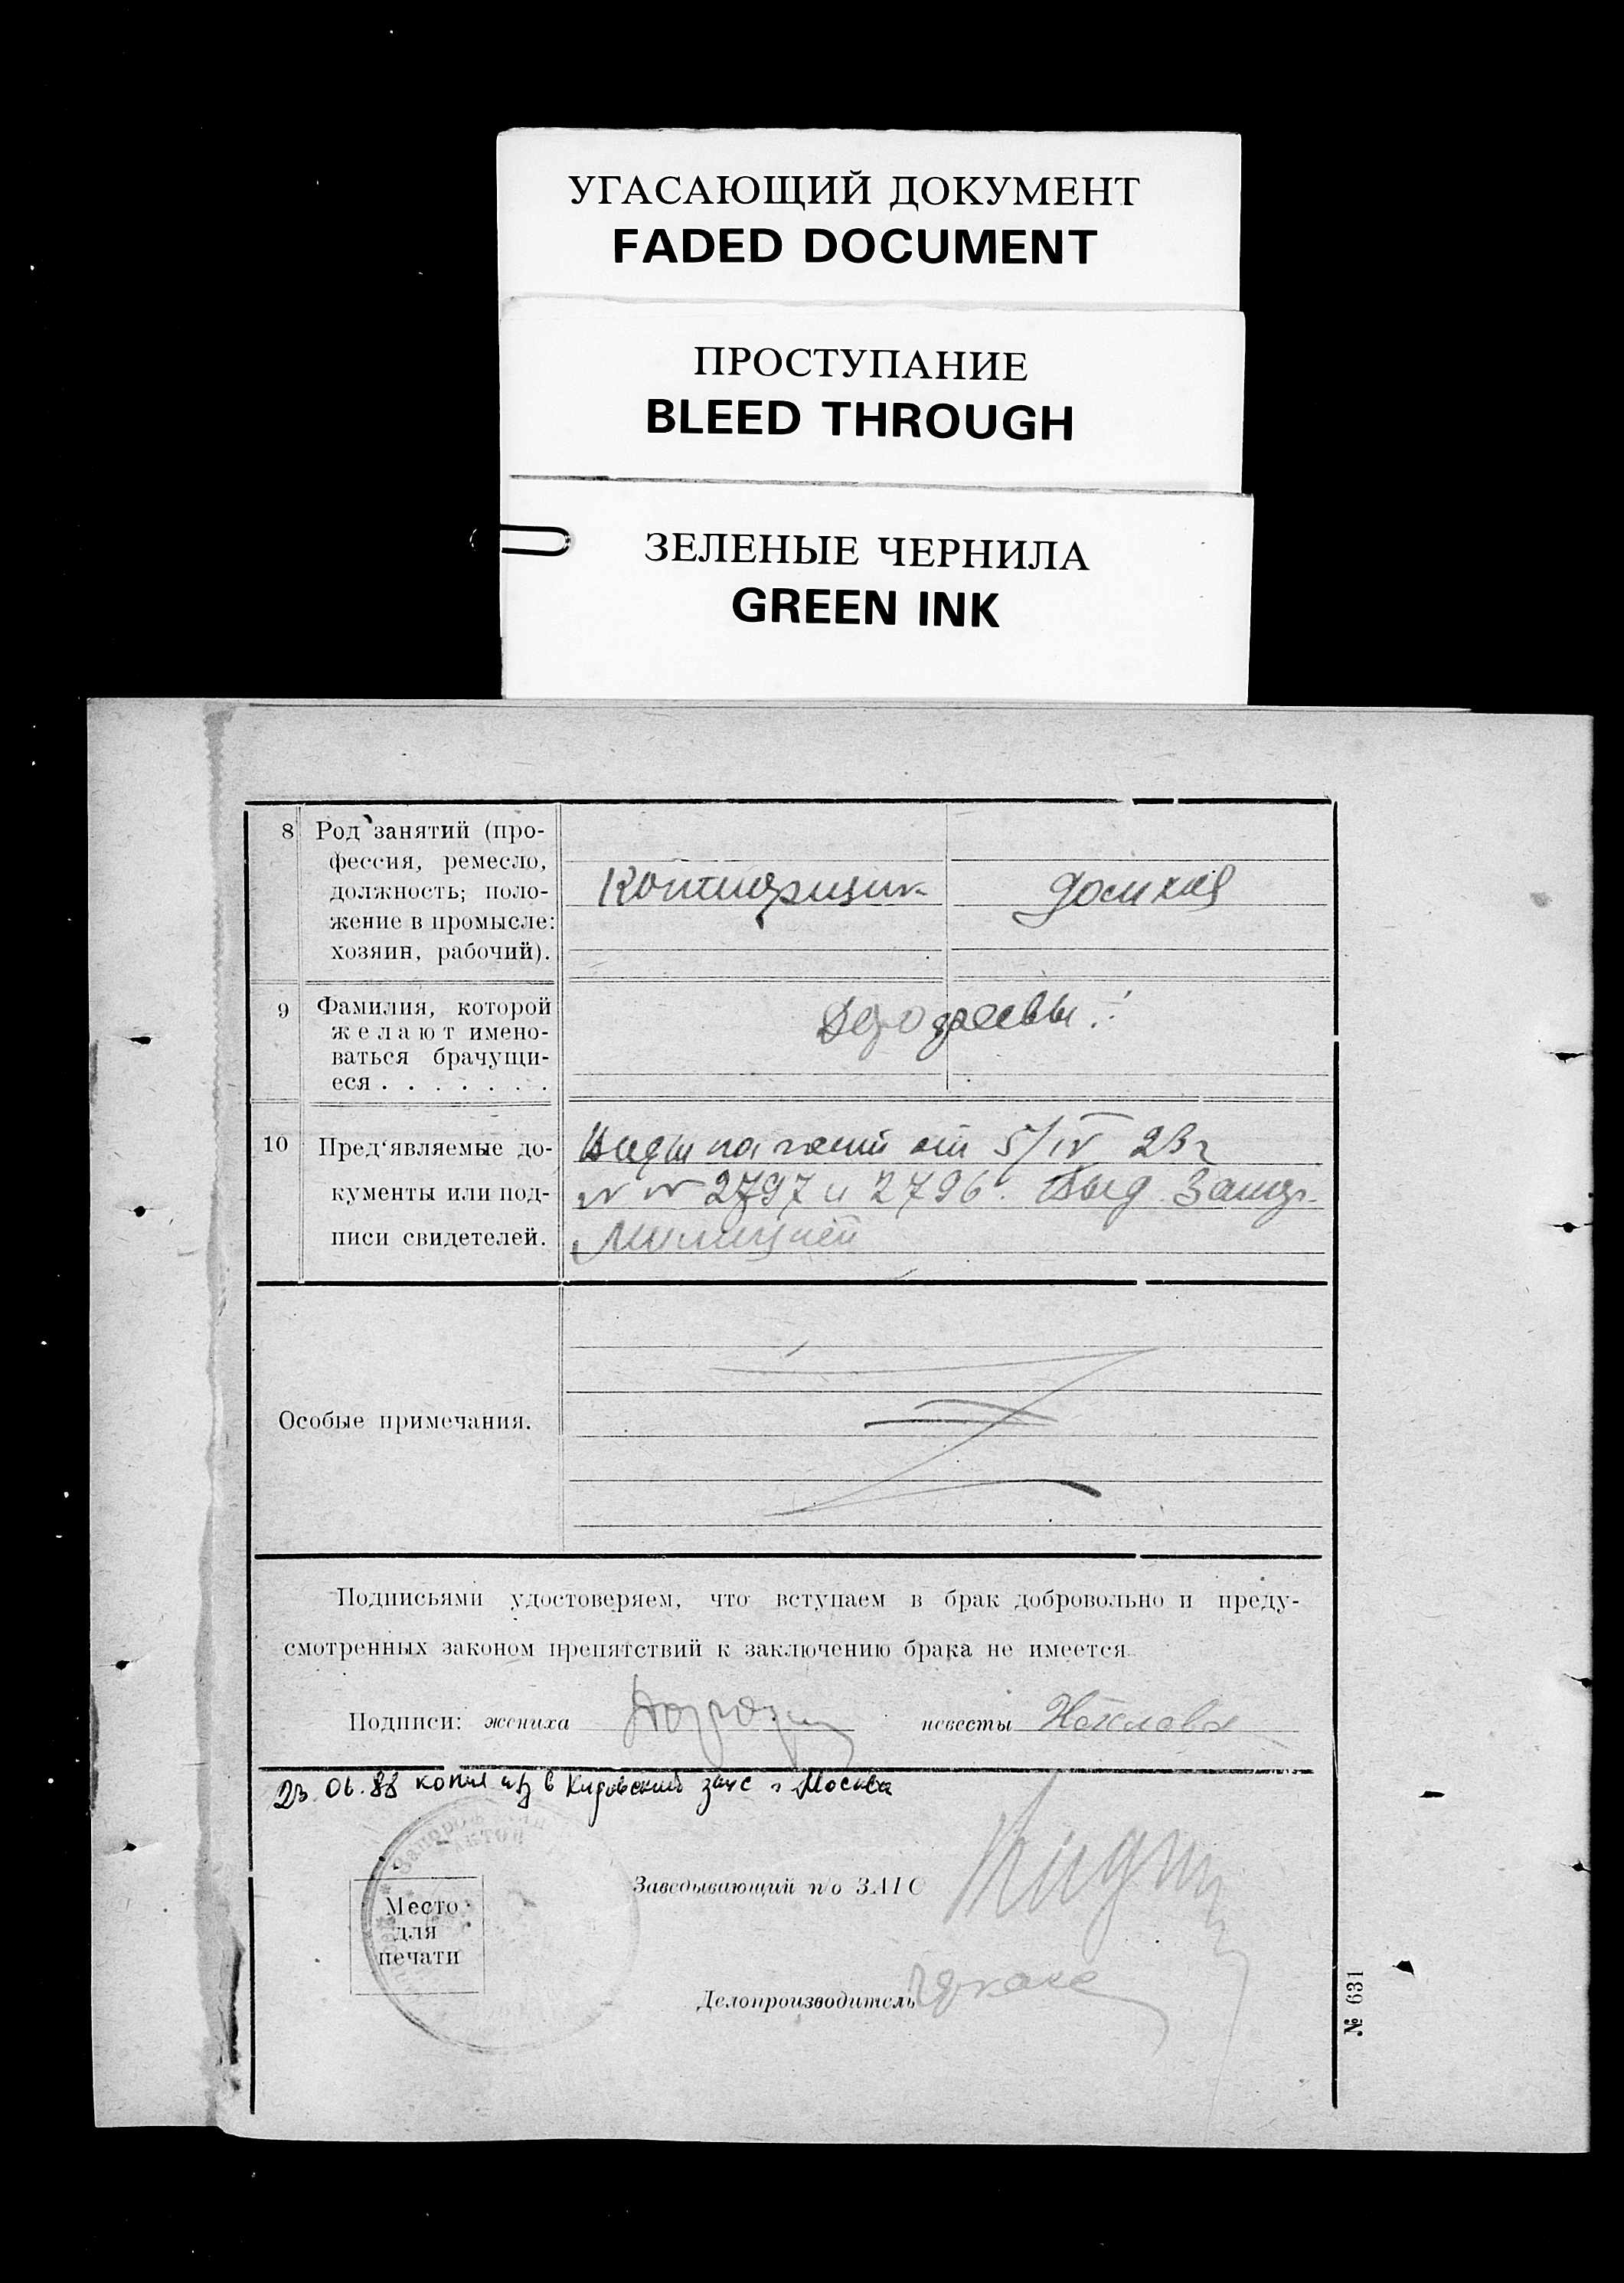 УГАСАЮЩИЙ ДОКУМЕНТ
FADED DOCUMENT
ПРОСТУПАНИЕ
BLEED THROUGH
ЗЕЛЕНЫЕ ЧЕРНИЛА
GREEN INK
8 Род занятий (про-
фессия, ремесло,
должность; поло-
жение в промысле:
хозяин, рабочий).
9 Фамилия, которой
желают имено-
ваться брачущи-
еся . . . . . . .
10 Пред'являемые до-
кументы или под-
писи свидетелей.
от 5/IV 23г
№№ 2797 и 2796. Выд.
Милицией
Особые примечания.
Подписьями удостоверяем, что вступаем в брак добровольно и преду-
смотренных законом препятствий к заключению брака не имеется.
Подписи: жениха невесты
23.06.88 копия в Кировский загс г Москва
Место
для
печати
Заведывающий п/о ЗАГС
Делопроизводитель
№ 631